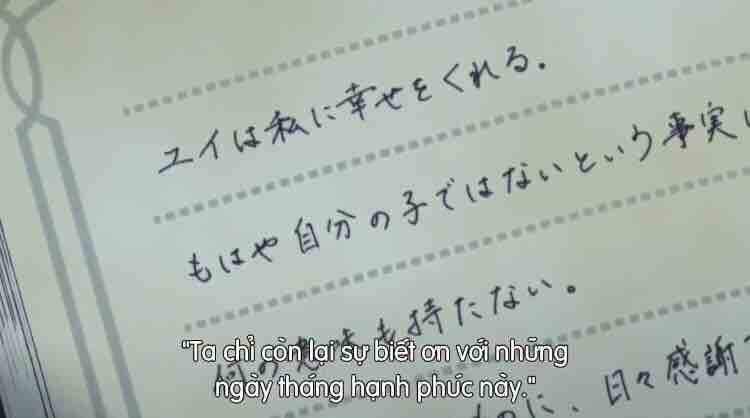 ユイは私に幸せをくれる。
もはや自分の子ではないという事実
何の意味も持たない。
のに、日々感謝
"Ta chỉ còn lại sự biết ơn với những
ngày tháng hạnh phúc này."